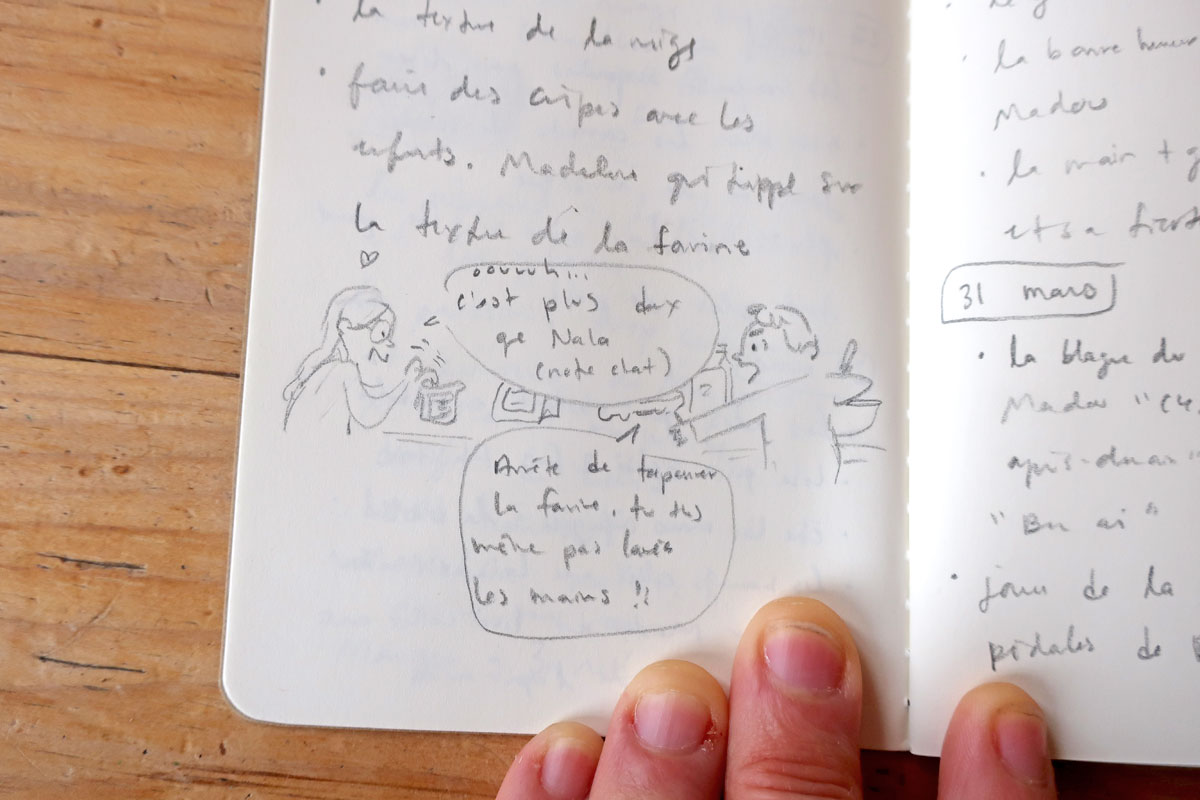 • la texture de la neige
• faire des crêpes avec les
enfants. Madeleine qui s'appl sur
la texture de la farine
oouuuh...
c'est plus doux
que Nala
(notre chat)
Arrête de tapoter
la farine, tu t'es
même pas lavés
les mains !!
la bonne humeur
Madow
• la main +
et sa fierté
31 mars
• la blague de
Mador "
après-demain"
"Bu ai"
• jouer de la
pédales de